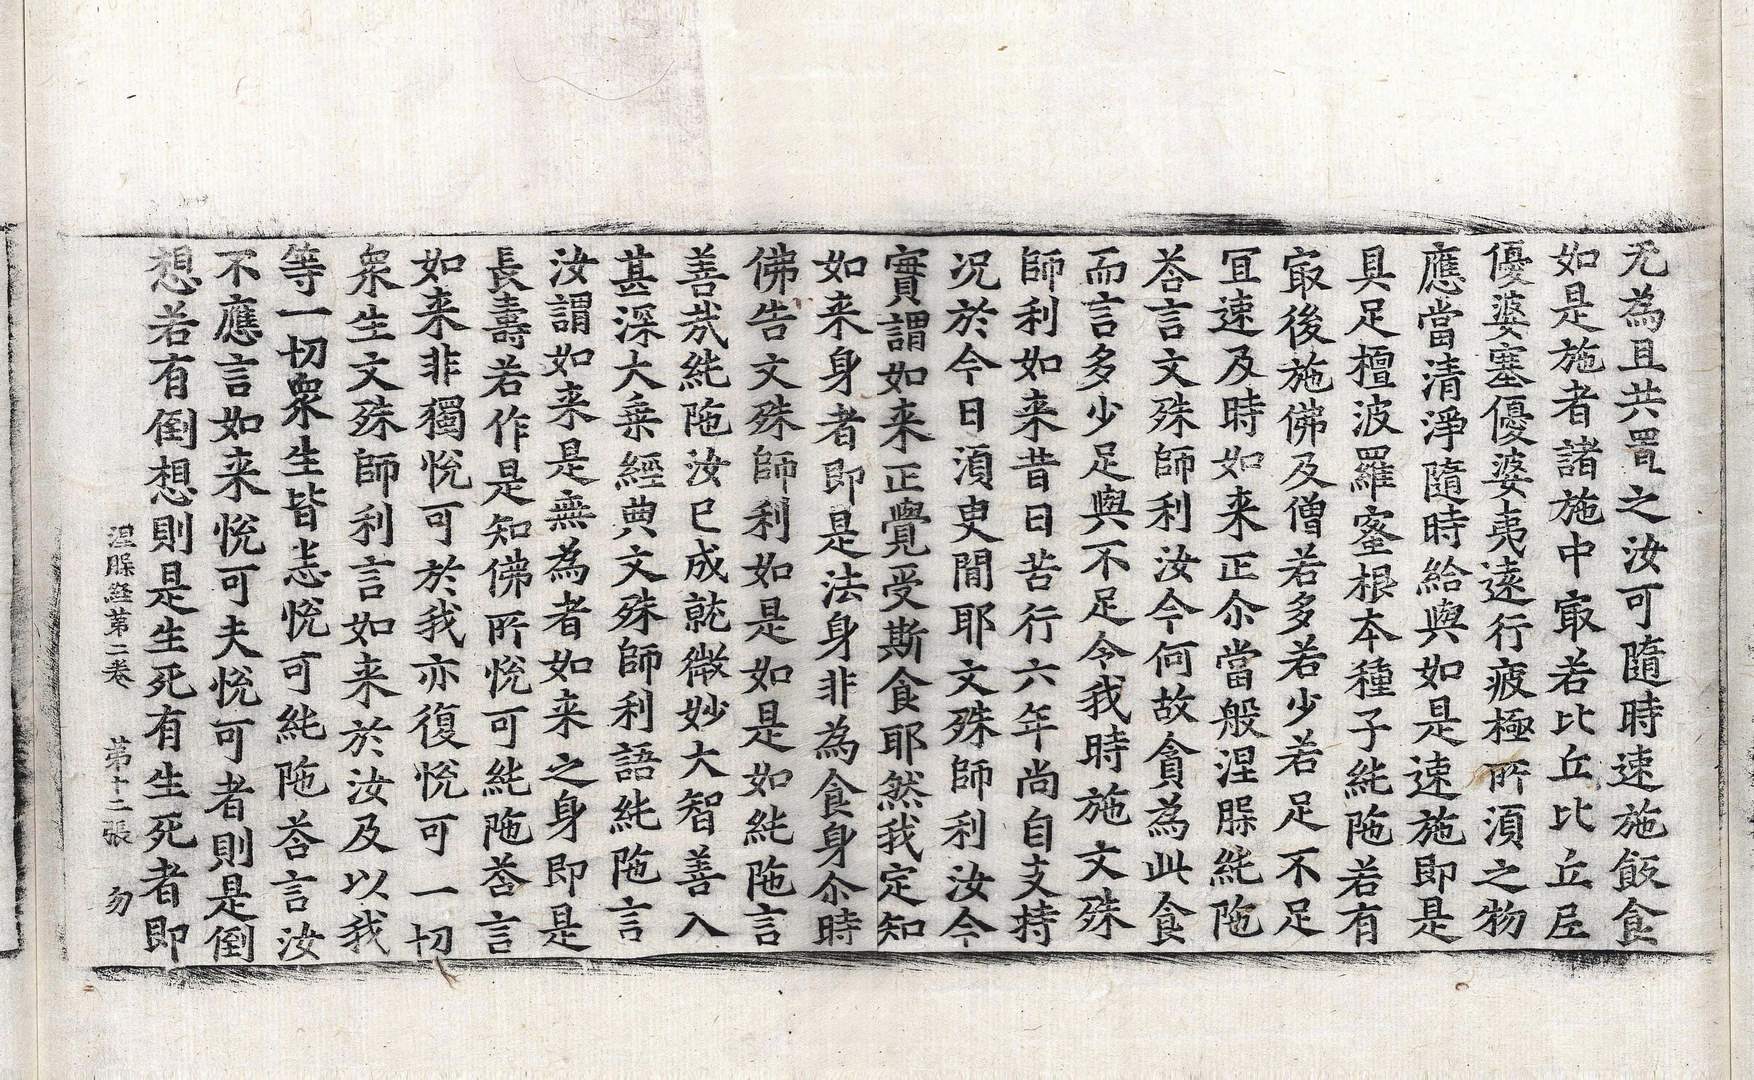 无為且共置之汝可隨時速施飯食
如是施者諸施中㝡若比丘比丘尼
優婆塞優婆夷遠行疲極所湏之物
應當清淨隨時給與如是速施即是
具足檀波羅蜜根本種子純陁若有
㝡後施佛及僧若多若少若足不足
冝速及時如来正尒當般涅槃純陁
荅言文殊師利汝今何故貪為此食
而言多少足與不足令我時施文殊
師利如来昔日苦行六年尚自支持
况於今日湏臾閒耶文殊師利汝今
實謂如来正覺受斯食耶然我定知
如来身者即是法身非為食身尒時
佛告文殊師利如是如是如純陁言
善㢤純陁汝已成就微妙大智善入
甚深大乗經典文殊師利語純陁言
汝謂如来是無為者如来之身即是
長壽若作是知佛所恱可純陁荅言
如来非獨恱可於我亦復恱可一切
衆生文殊師利言如来於汝及以我
等一切衆生皆悉恱可純陁荅言汝
不應言如来恱可夫恱可者則是倒
想若有倒想則是生死有生死者即
涅槃經第二卷　第十二張　勿